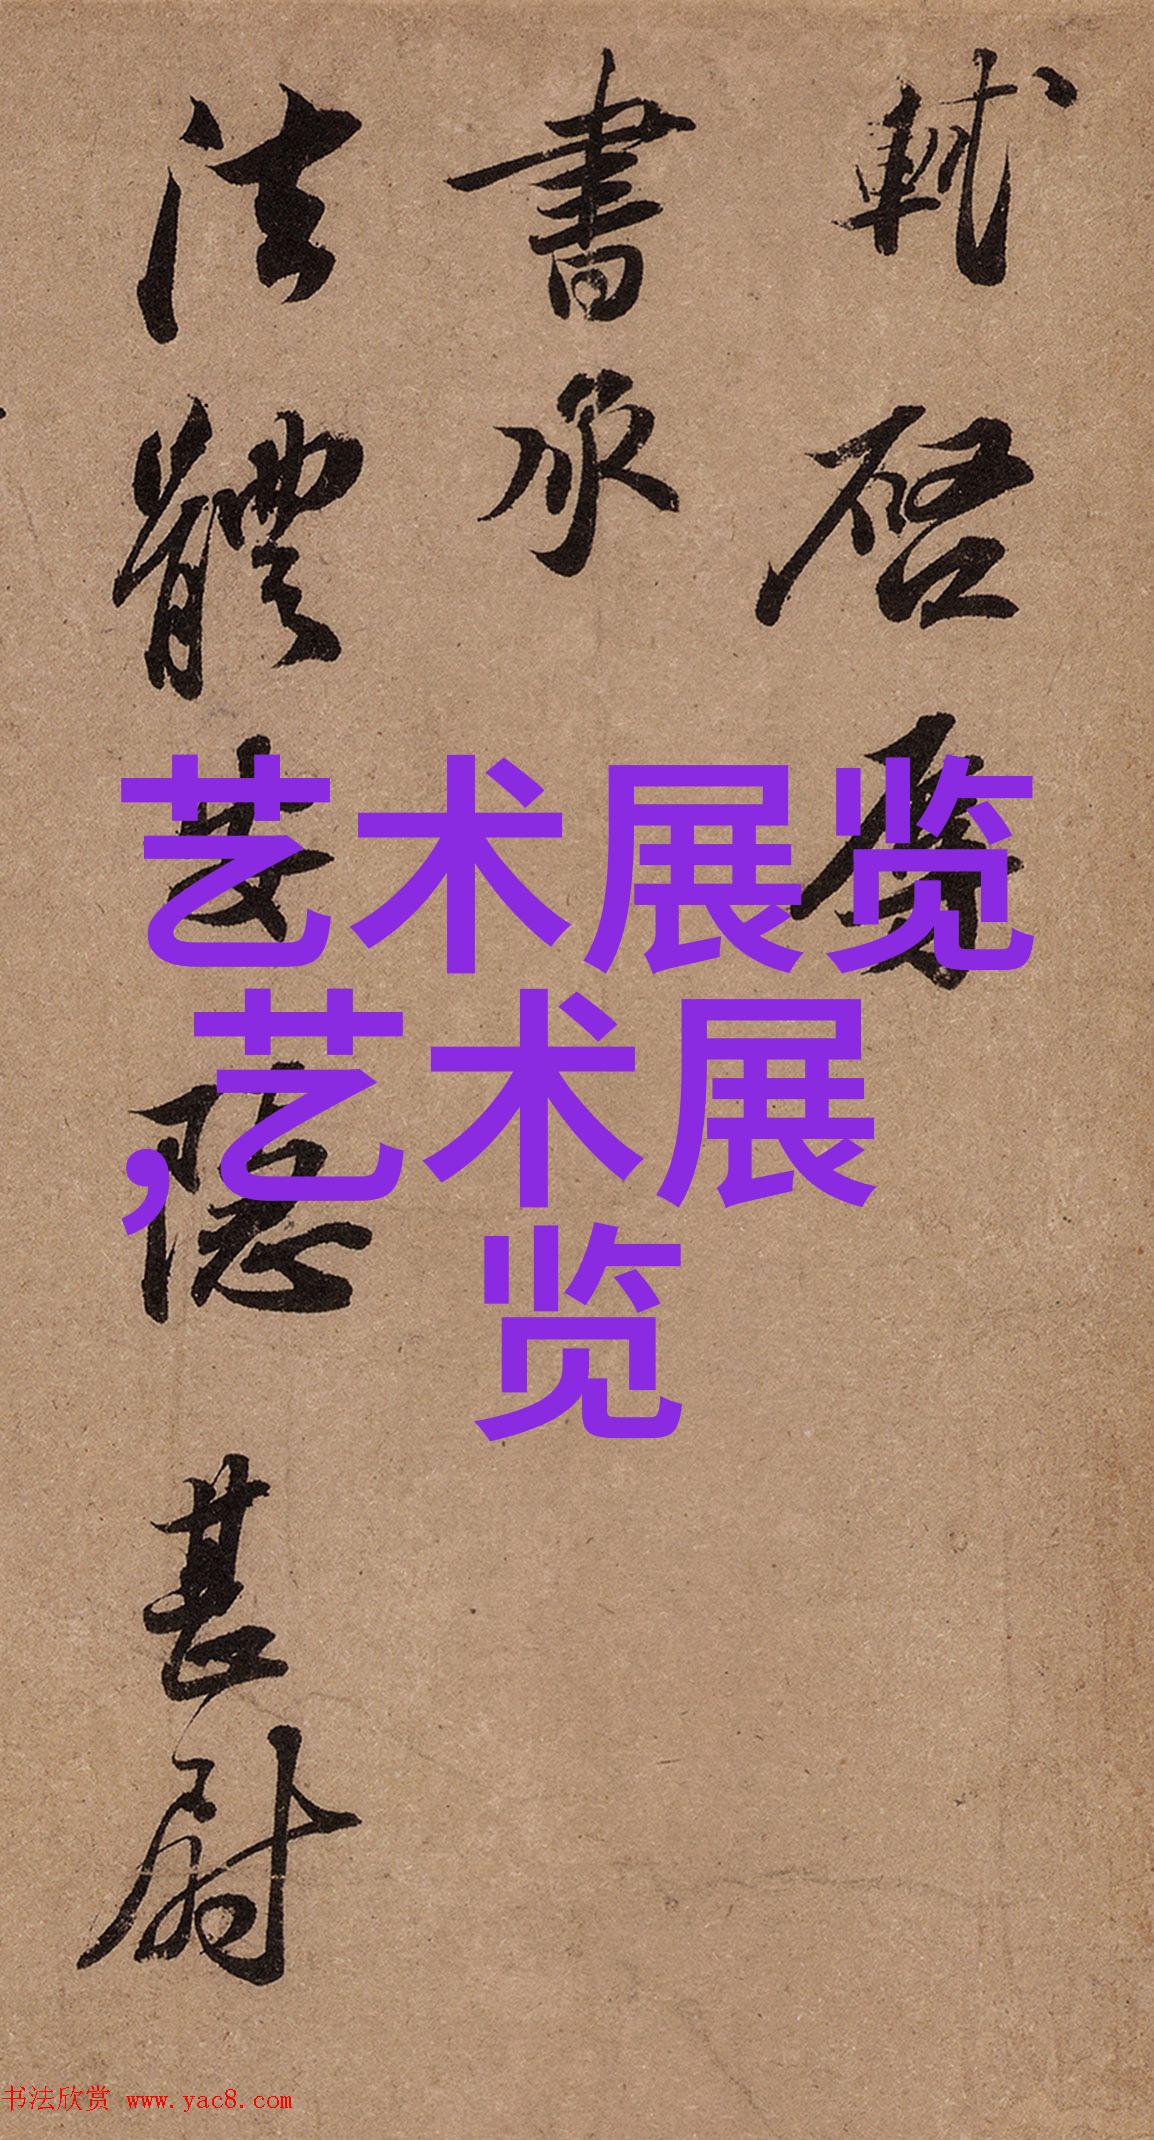 軾啓辱
書承
法體安隱甚尉
艺术展览
,艺术展
览
书法欣赏 www.yac8.com